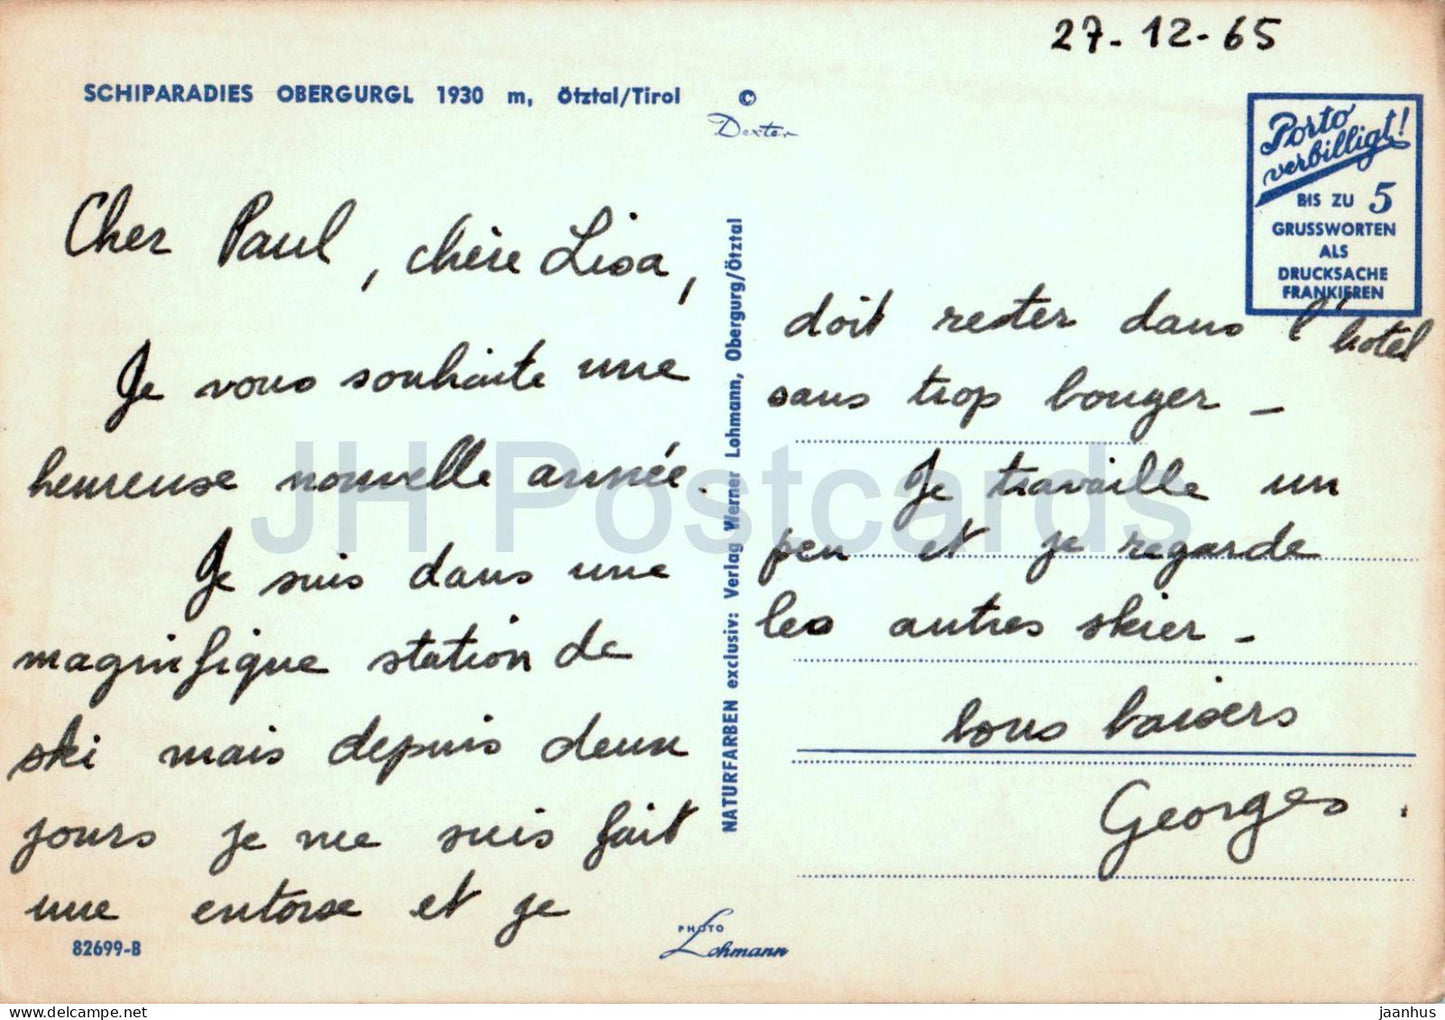 27-12-65
SCHIPARADIES OBERGURGL 1930 m, Ötztal/Tirol
©
Dexter
Porto
verbilligt!
BIS ZU 5
GRUSSWORTEN
ALS
DRUCKSACHE
FRANKIEREN
Cher Paul, chère Lisa,
Je vous souhaite une
heureuse nouvelle année.
Je suis dans une
magnifique station de
ski mais depuis deux
jours je me suis fait
une entorse et je
82699-B
NATURFARBEN exclusiv: Verlag Werner Lohmann, Obergurg/Ötztal
PHOTO
Lohmann
doit rester dans l'hotel
sans trop bouger -
Je travaille un
peu et je regarde
les autres skier -
bons baisers
Georges.
JH Postcards
jaanhus | delcampe.net